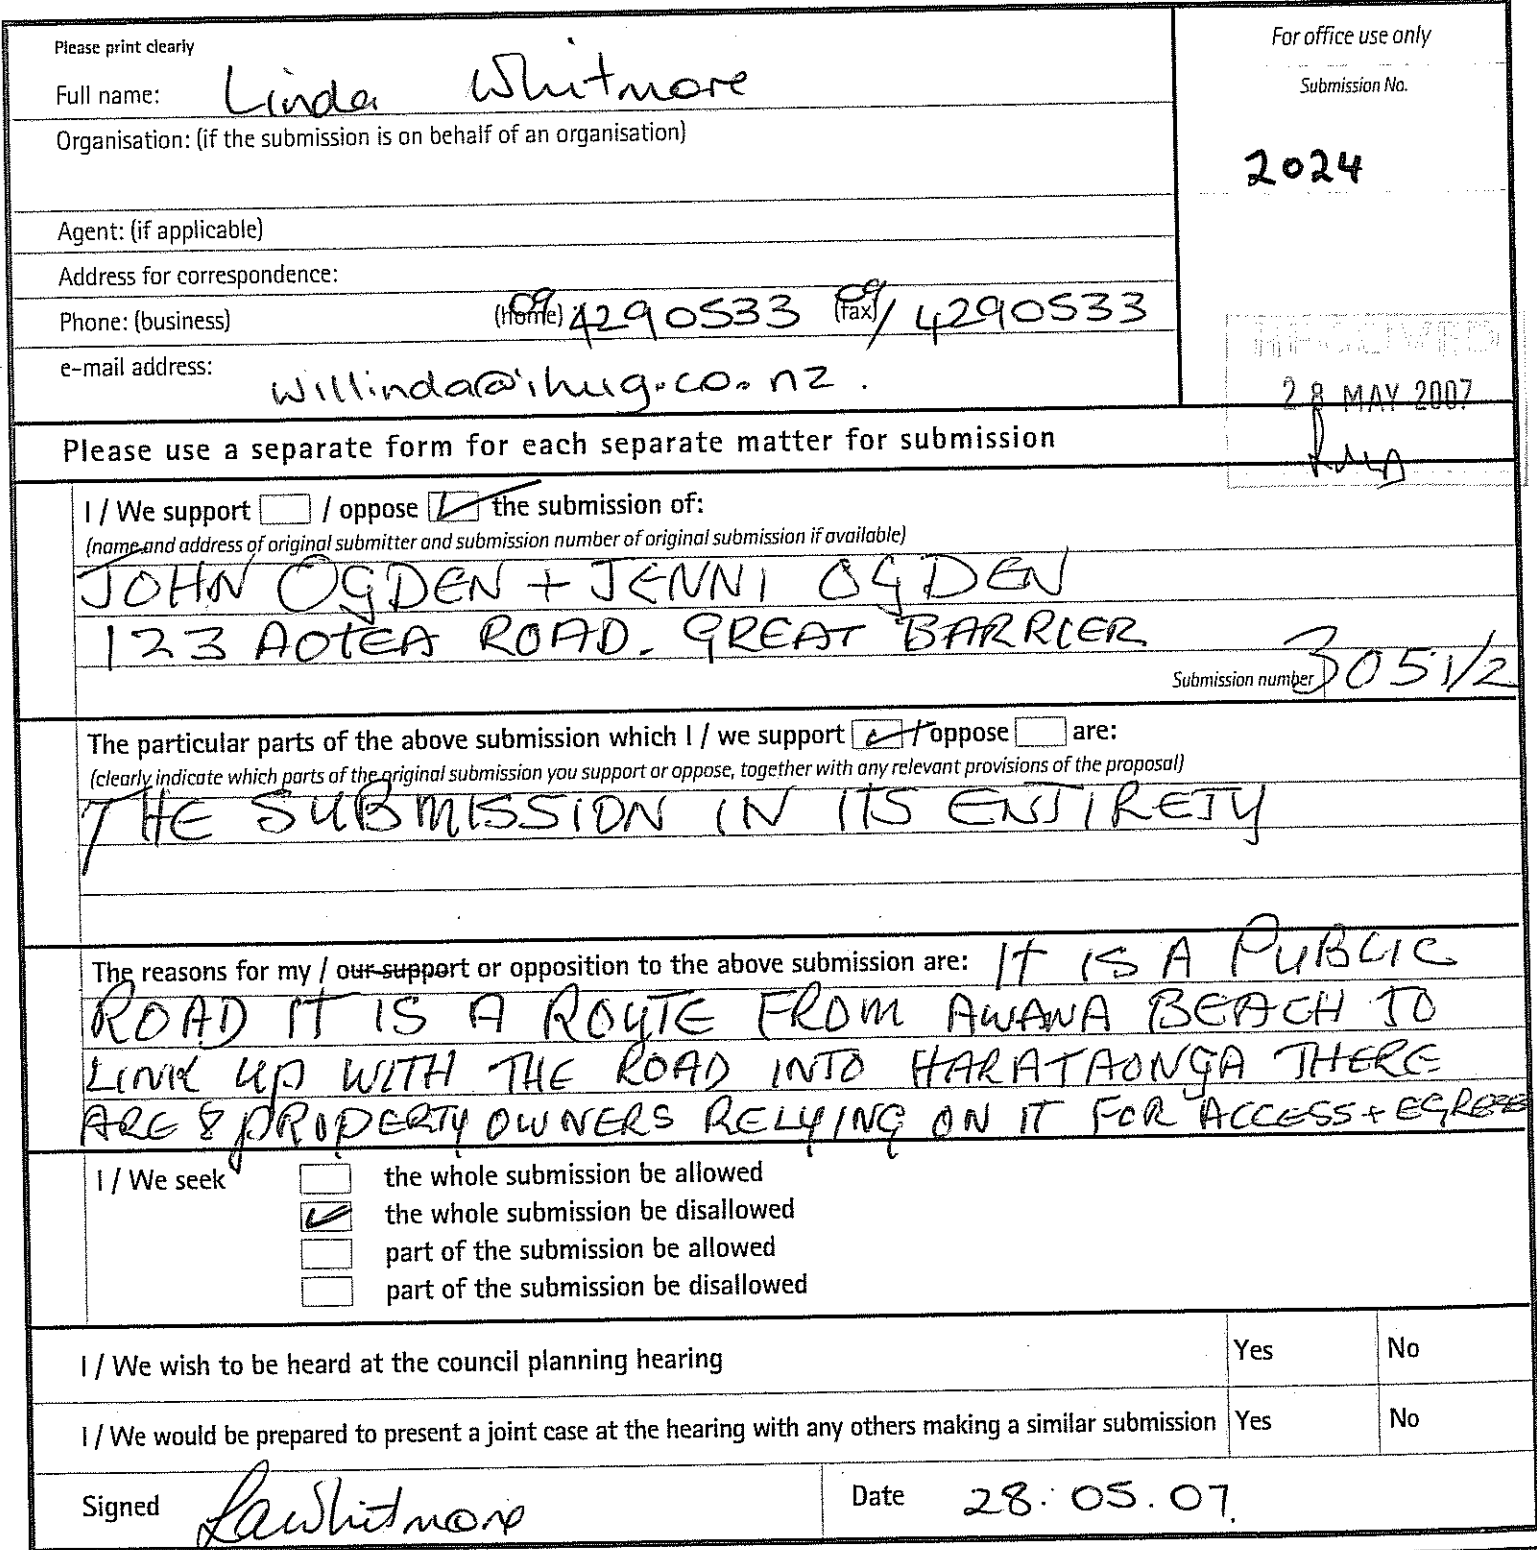 Please print clearly
Full name: Linda Whitmore
Organisation: (if the submission is on behalf of an organisation)
Agent: (if applicable)
Address for correspondence:
Phone: (business) (home) 09 4290533 (fax) 09/ 4290533
e-mail address: willinda@ihug.co.nz.
For office use only
Submission No.
2024
RECEIVED
28 MAY 2007
Please use a separate form for each separate matter for submission
I / We support / oppose ✓ the submission of:
(name and address of original submitter and submission number of original submission if available)
JOHN OGDEN + JENNI OGDEN
123 AOTEA ROAD. GREAT BARRIER
Submission number 3051/2
The particular parts of the above submission which I / we support ✓ / oppose are:
(clearly indicate which parts of the original submission you support or oppose, together with any relevant provisions of the proposal)
THE SUBMISSION IN ITS ENTIRETY
The reasons for my / our support or opposition to the above submission are: IT IS A PUBLIC
ROAD IT IS A ROUTE FROM AWANA BEACH TO
LINK UP WITH THE ROAD INTO HARATAONGA THERE
ARE 8 PROPERTY OWNERS RELYING ON IT FOR ACCESS + EGRESS
I / We seek
the whole submission be allowed
✓ the whole submission be disallowed
part of the submission be allowed
part of the submission be disallowed
I / We wish to be heard at the council planning hearing Yes No
I / We would be prepared to present a joint case at the hearing with any others making a similar submission Yes No
Signed LAWhitmore Date 28.05.07.